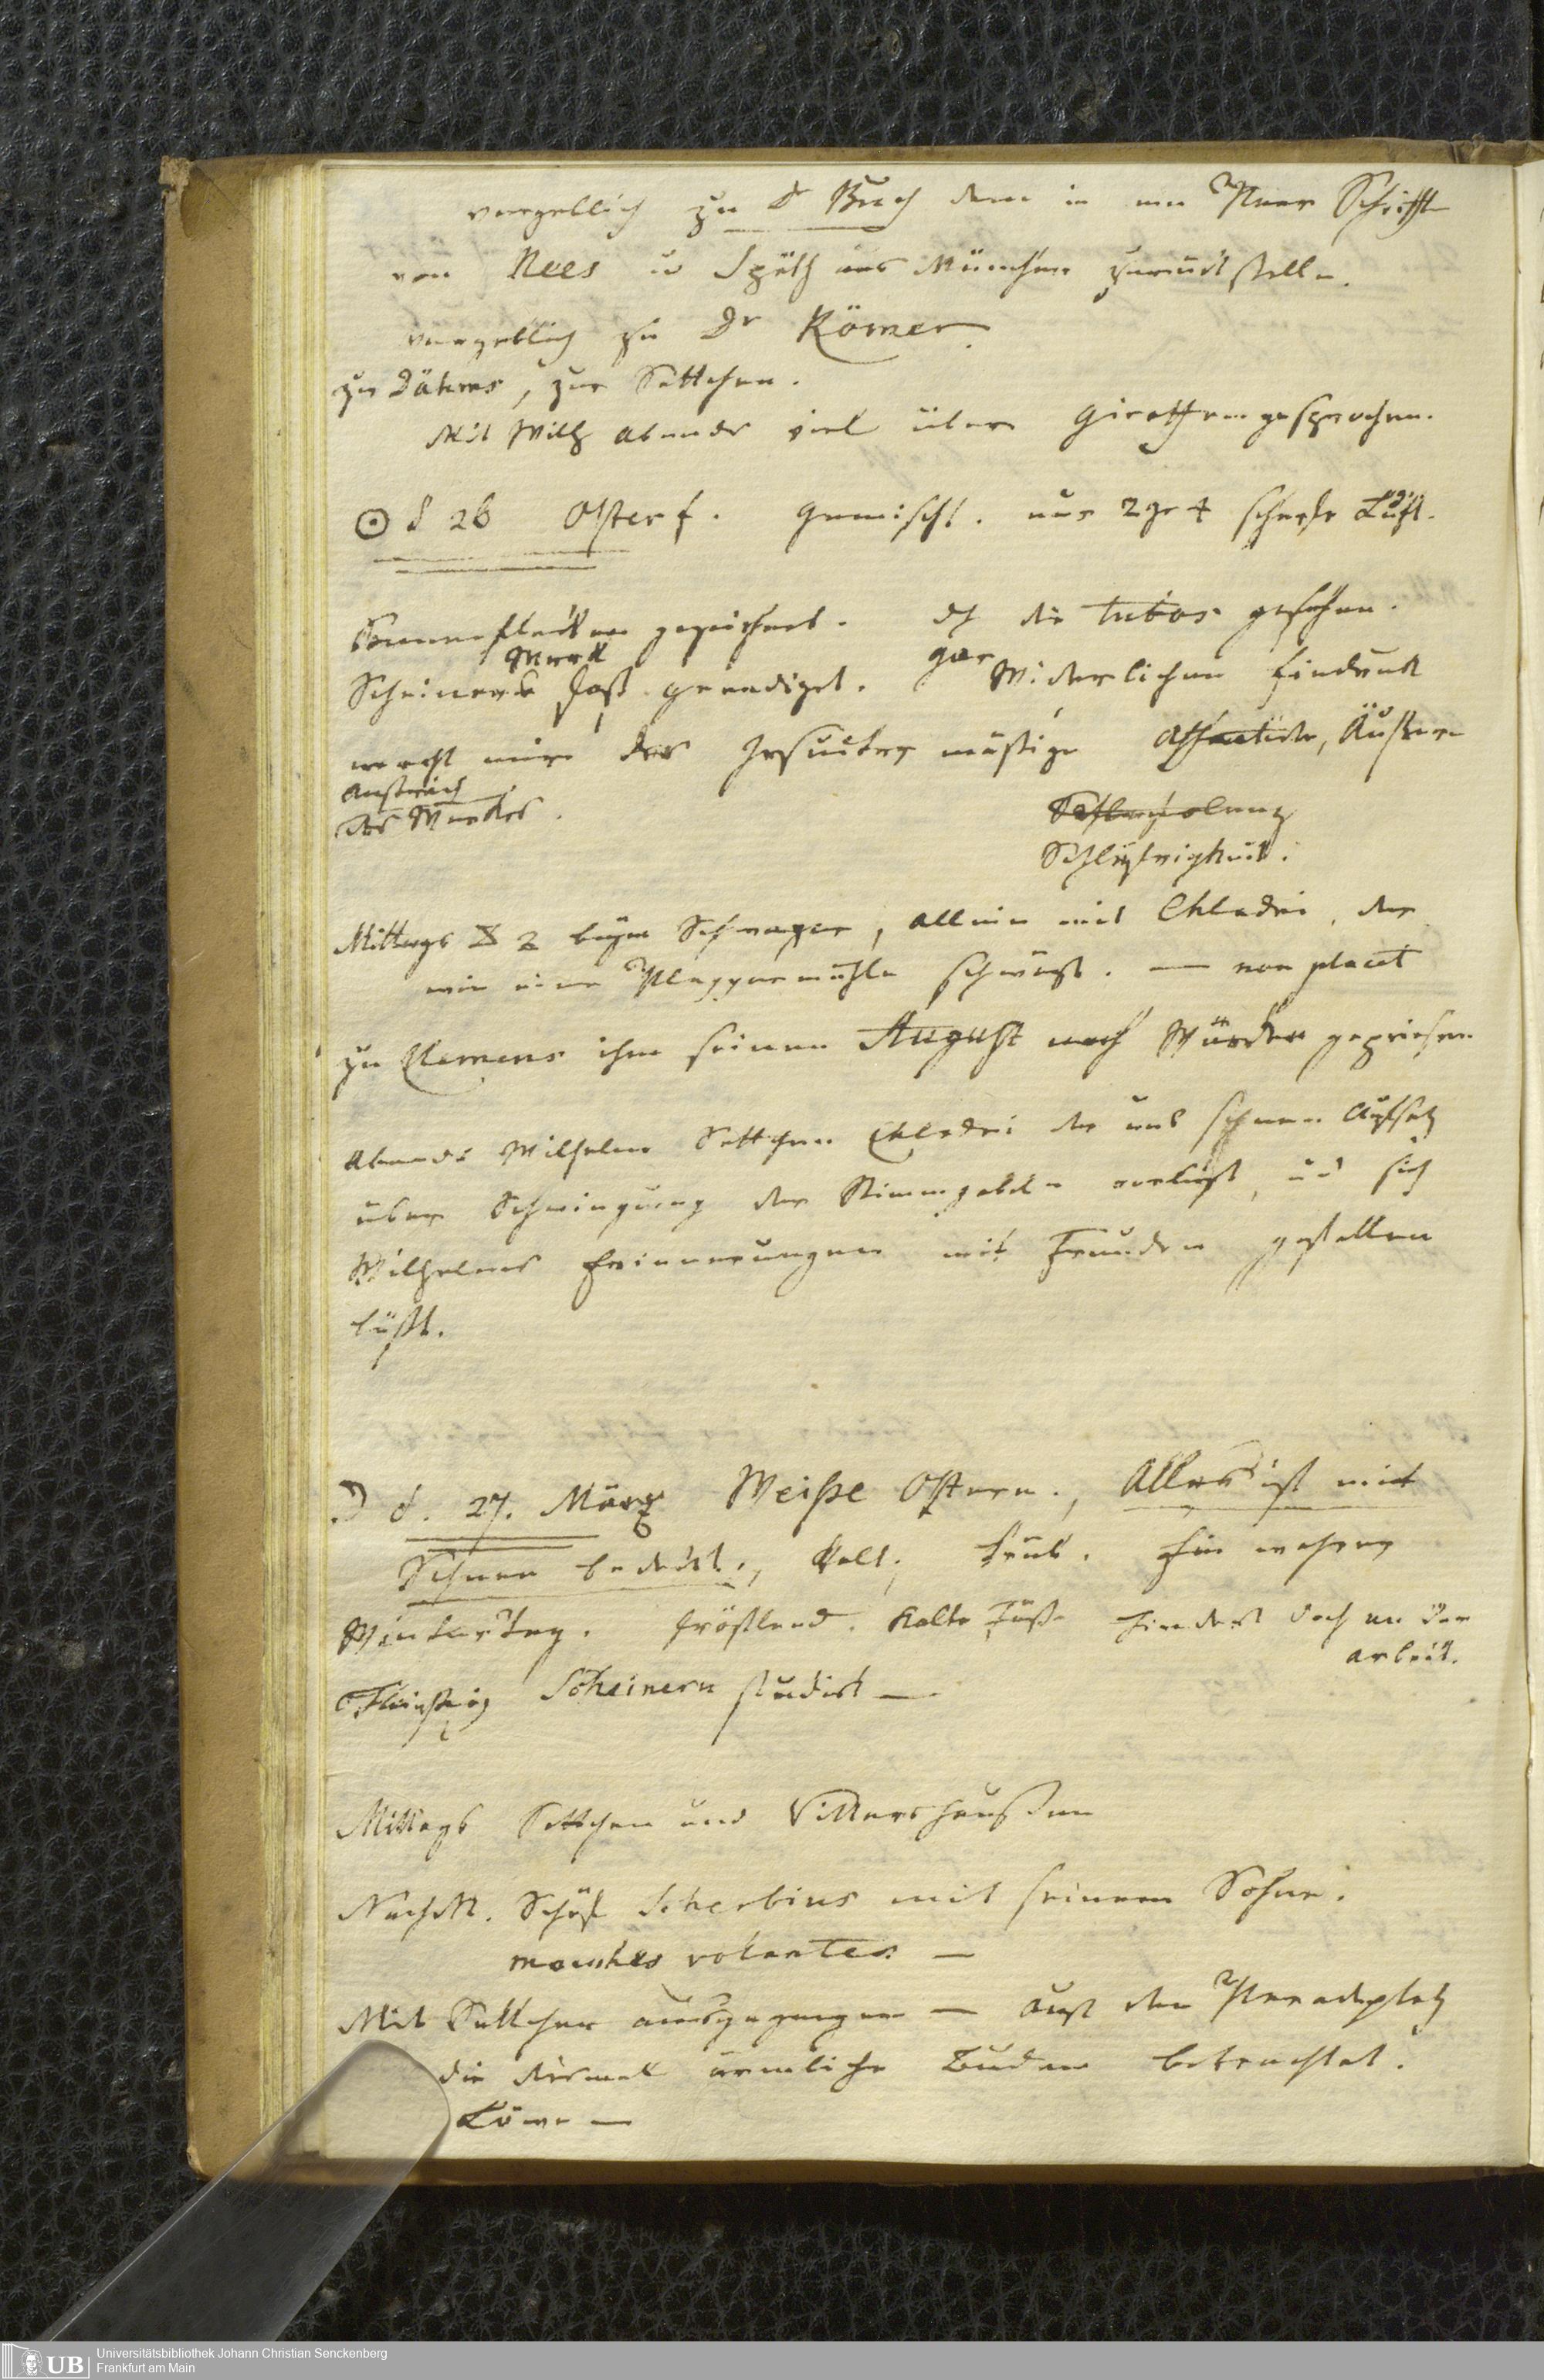 vergeblich zu Dr Buch dem ich ein Paar Schriften
von Nees u Späth aus München zurückstelle.
vergeblich zu Dr Römer
zu Dähms, zur Settchen.
Mit Wilh abends viel über Giraffen gesprochen.
☉ d 26 Osterf. Gemischt. nur 2 gr + scharfe Luft.
Sonnenflecken gezeichnet. die Tubos gesehen.
Scheiners Werk fast geendiget. gar Widerlichen Eindruck
macht mir der Jesuiter mäßige Äußere
Anstrich
des Werkes.
Schlüpfrigkeit.
Mittags 2 beym Schwager, allein mit Chladni, der
wie eine Plappermühle schwäzt. — non placet
zu Clemens ihm seinen August nach Würden gepriesen
Abends Wilhelm Settchen Chladni der uns seinen Aufsatz
über Schwingung der Stimmgabeln vorliest, und sich
Wilhelms Erinnerungen mit Freuden gefallen
läßt.
☽ d. 27. März Weiße Ostern., Alles ist mit
Schnee bedeckt., kalt, trüb. Ein wahrer
Wintertag. fröstlend. kalte Füße hindert doch an der
arbeit.
Fleißig Scheinern studirt —
Mittags Settchen und Vittershausen
NachM. Schöf Scherbius mit seinem Sohne.
mouches volantes —
Mit Settchen ausgegangen — auf den Paradeplatz
die diesmal ärmliche Buden betrachtet.
Löwe —
UB Universitätsbibliothek Johann Christian Senckenberg
Frankfurt am Main